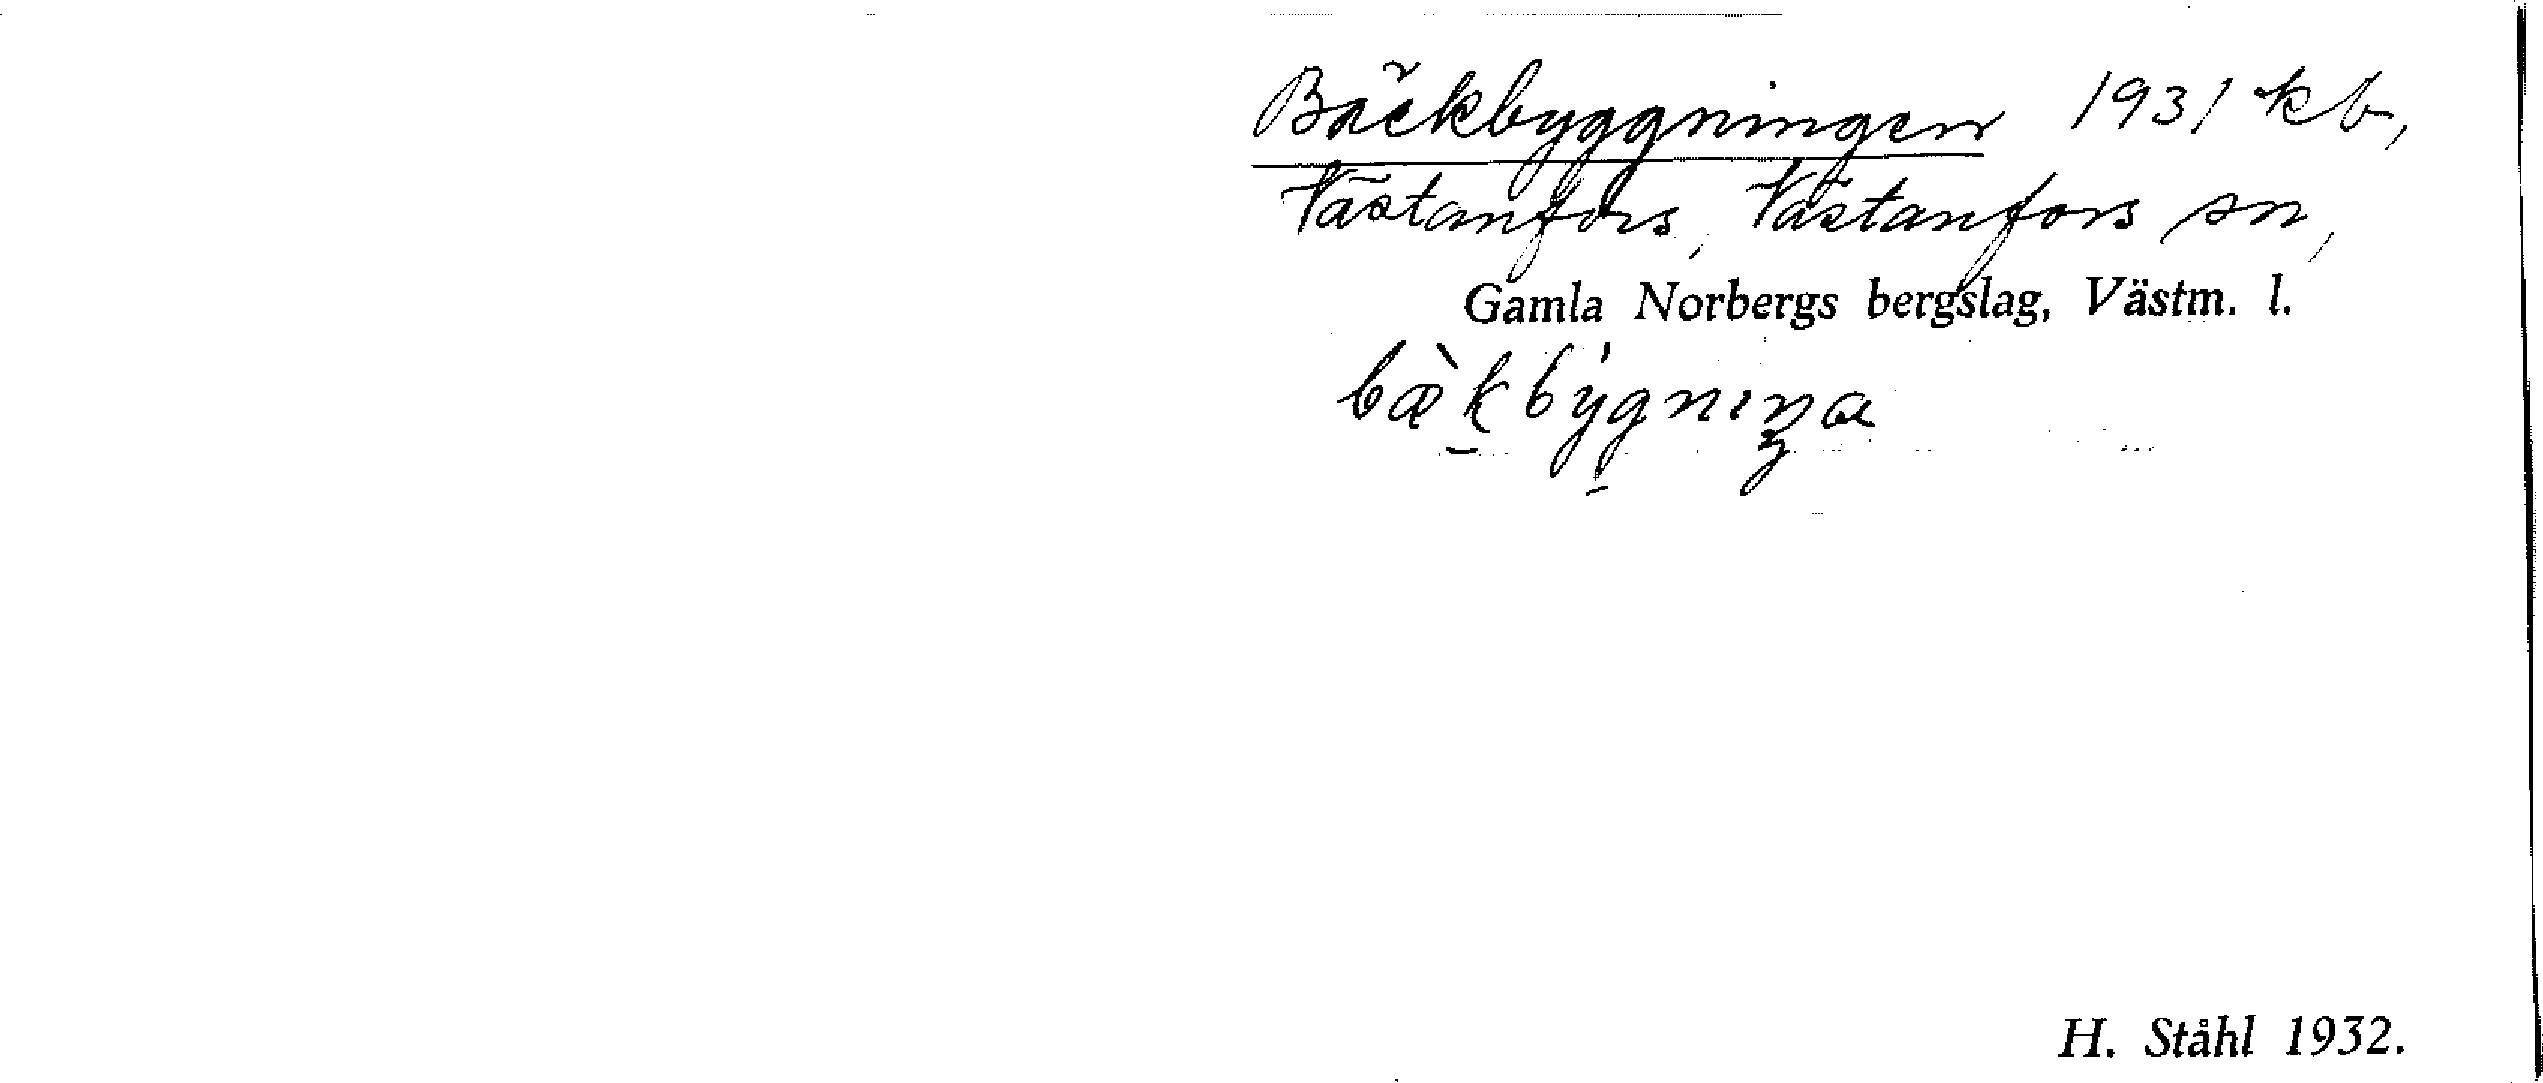 Bäckbyggningen 1931 kb,
Västanfors, Västanfors sn,
Gamla Norbergs bergslag, Västm. l.
bæ̀k̠by̍g̠nıŋa
H. Ståhl 1932.